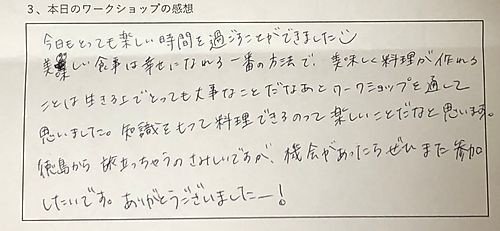 3、本日のワークショップの感想
今日もとっても楽しい時間を過ごすことができました
美味しい食事は幸せになれる一番の方法で、美味しく料理が作れる
ことは生きる上でとっても大事なことだなあとワークショップを通して
思いました。知識をもって料理できるのって楽しいことだなと思います。
徳島から旅立っちゃうのさみしいですが、機会があったらぜひまた参加
したいです。ありがとうございましたー!